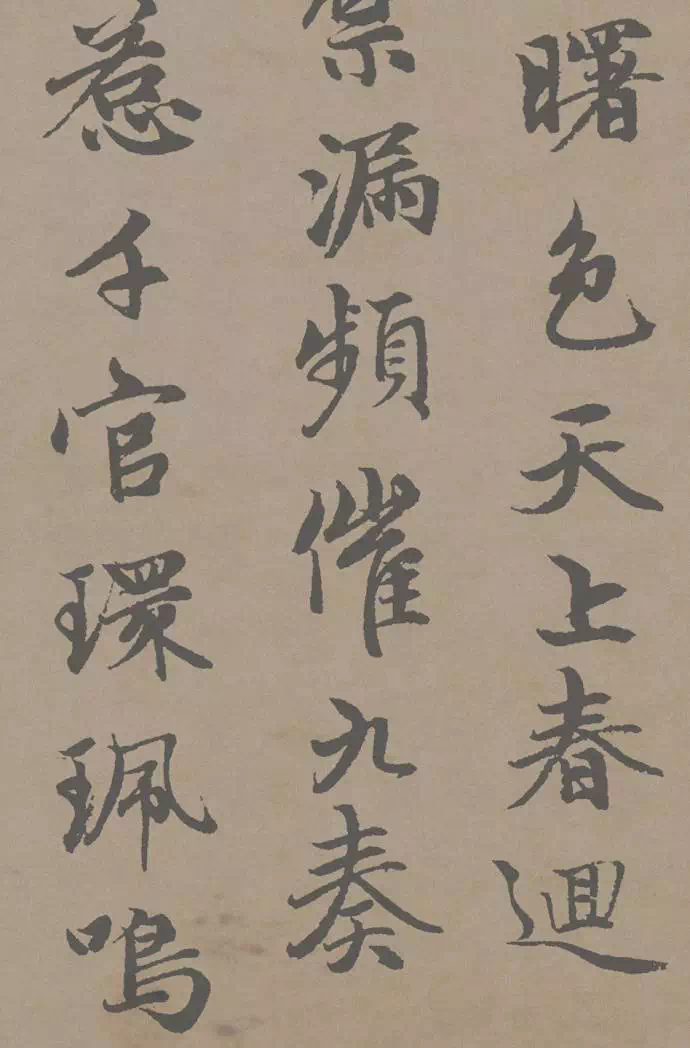 曙色天上春迴
禁漏頻催九奏
惹千官環珮鳴